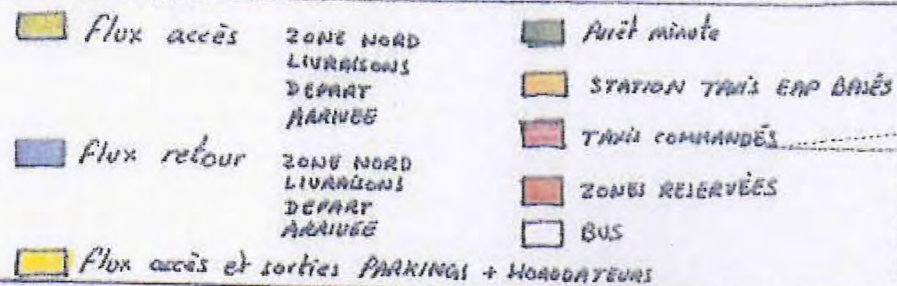 Flux accès
ZONE NORD
LIVRAISONS
DEPART
ARRIVEE
Flux retour
ZONE NORD
LIVRAISONS
DEPART
ARRIVEE
Flux accès et sorties PARKINGS + HORODATEURS
Arrêt minute
STATION TAXIS EAP BASÉS
TAXIS COMMANDÉS
ZONES RESERVÉES
BUS